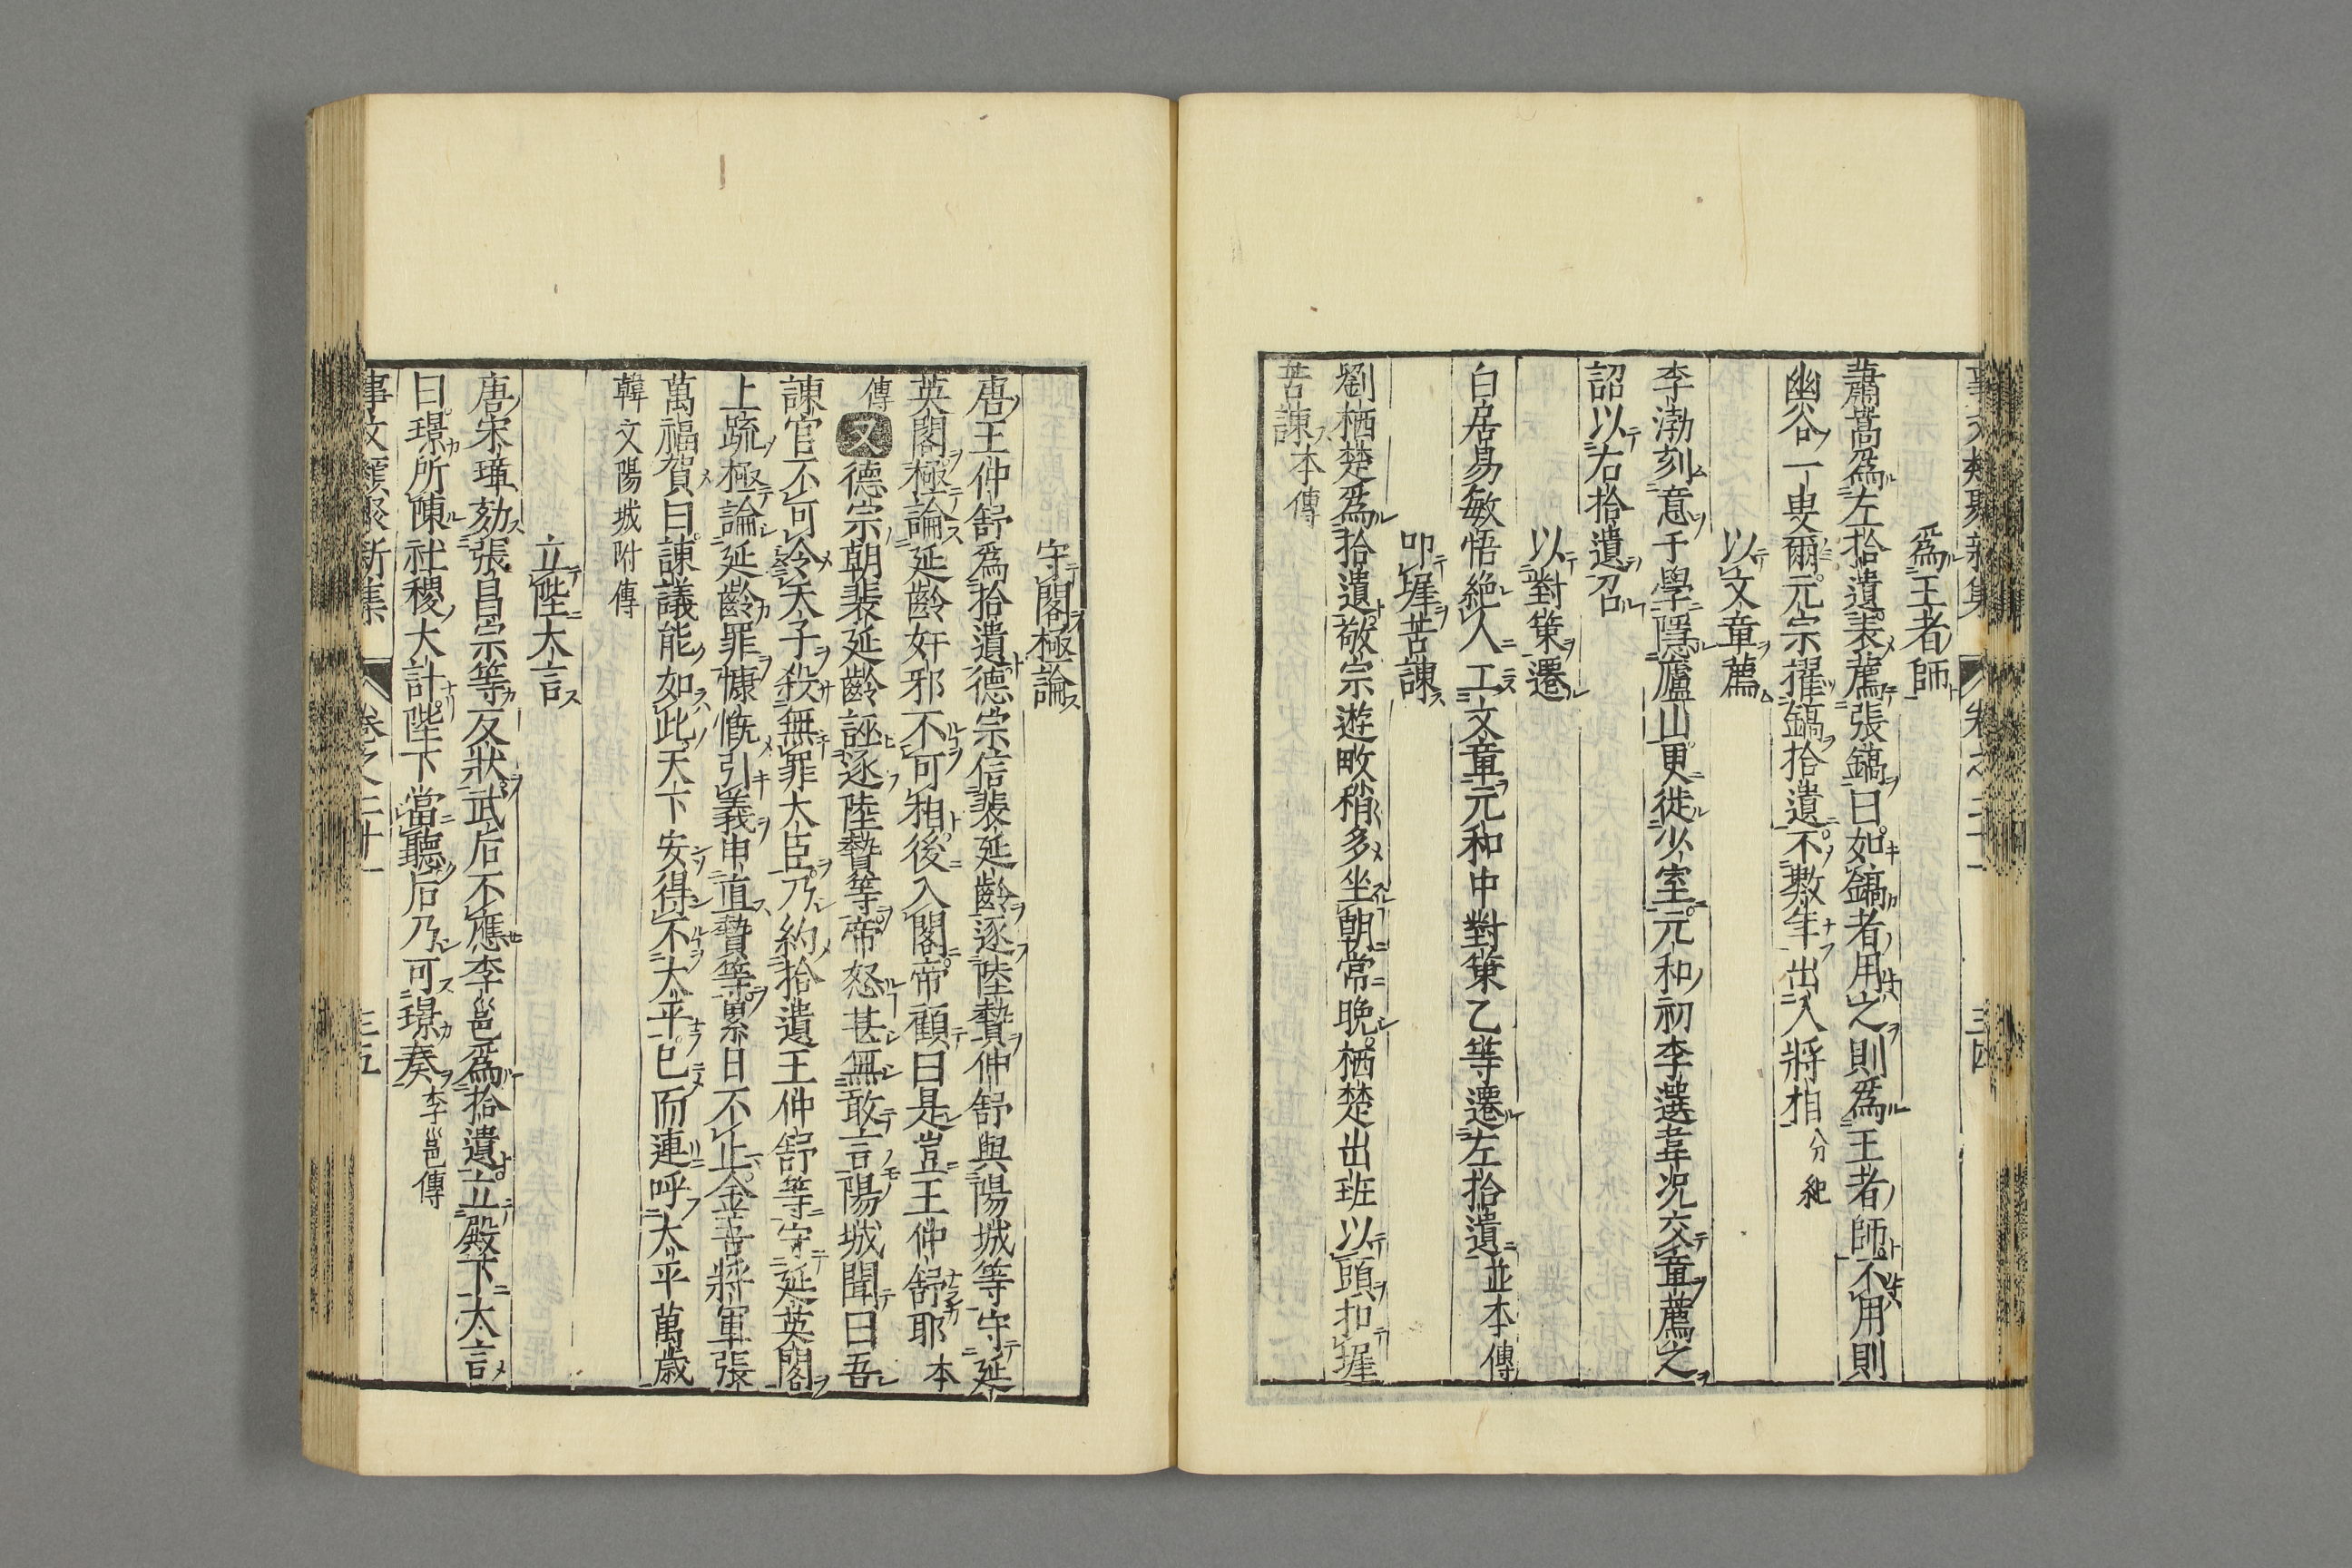 事文類聚新集 卷之二十一 三四
爲王者師
蕭嵩爲左拾遺表薦張鎬曰如鎬者用之則爲王者師不用則
幽谷一叟爾元宗擢鎬拾遺不數年出入將相 分紀
以文章薦
李渤刻意于學隱廬山更徙少室元和初李選韋况交章薦之
詔以右拾遺召
以對策遷
白居易敏悟絶人工文章元和中對策乙等遷左拾遺 並本傳
叩墀苦諫
劉栖楚爲拾遺敬宗遊畋稍多坐朝常晚栖楚出班以頭扣墀
苦諫 本傳
守閤極論
唐王仲舒爲拾遺德宗信裴延齡逐陸贄仲舒與陽城等守延
英閤極論延齡奸邪不可相後入閤帝顧曰是豈王仲舒耶 本
傳 又 德宗朝裴延齡誣逐陸贄等帝怒甚無敢言陽城聞曰吾
諫官不可令天子殺無罪大臣乃約拾遺王仲舒等守延英閤
上疏極論延齡罪慷慨引義申直贄等累日不止金吾將軍張
萬福賀曰諫議能如此天下安得不大平已而連呼太平萬歳
韓文陽城附傳
立陛大言
唐宋璟劾張昌宗等反狀武后不應李邕爲拾遺立殿下大言
曰璟所陳社稷大計陛下當聽后乃可璟奏 李邕傳
事文類聚新集 卷之二十一 三五